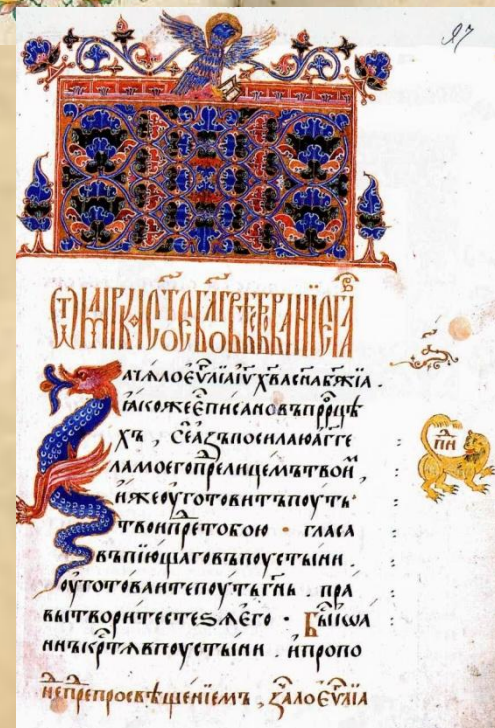 97
Ѿ МАРКА СТ҃ОЕ БЛ҃ГОВѢСТВОВАНЇЕ ГЛА҃ В҃
Зачѧло еѵⷢ҇лїа іѵ хв҃а сн҃а бж҃їа.
ꙗкоже е҆ писано въ пррⷪ҇цѣ
хъ, се азъ посилаю агге
ла моего прⷣе лицемъ твои
иже оуготовитъ поуть
твои прⷣе тобою · гласъ
въпїющаго въ поустыни.
оуготоваите поуть гн҃ь. пра
вы творите стеѕѧ е҆го · Быⷭ҇ їѡа
ннъ крⷭ҇тѧ в поустыни. и пропо
пн҃
неⷣ преⷣ просвѣщенїемъ, зⷶало еѵⷢ҇лїа